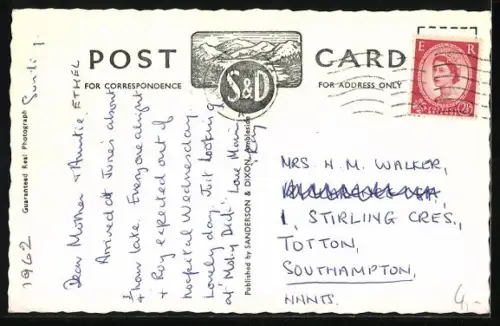 POST CARD
FOR CORRESPONDENCE
FOR ADDRESS ONLY
S&D
E R
2½
Guaranteed Real Photograph
Published by SANDERSON & DIXON, Ambleside
1962
Sunday
Dear Mother & Auntie ETHEL
Arrived at Junes about
½ hour late. Everyone alright
& Roy expected out of
hospital Wednesday
Lovely day. Just looking
at 'Moby Dick'. Love
MRS H. M. WALKER,
1, STIRLING CRES.,
TOTTON,
SOUTHAMPTON,
HANTS.
4,-